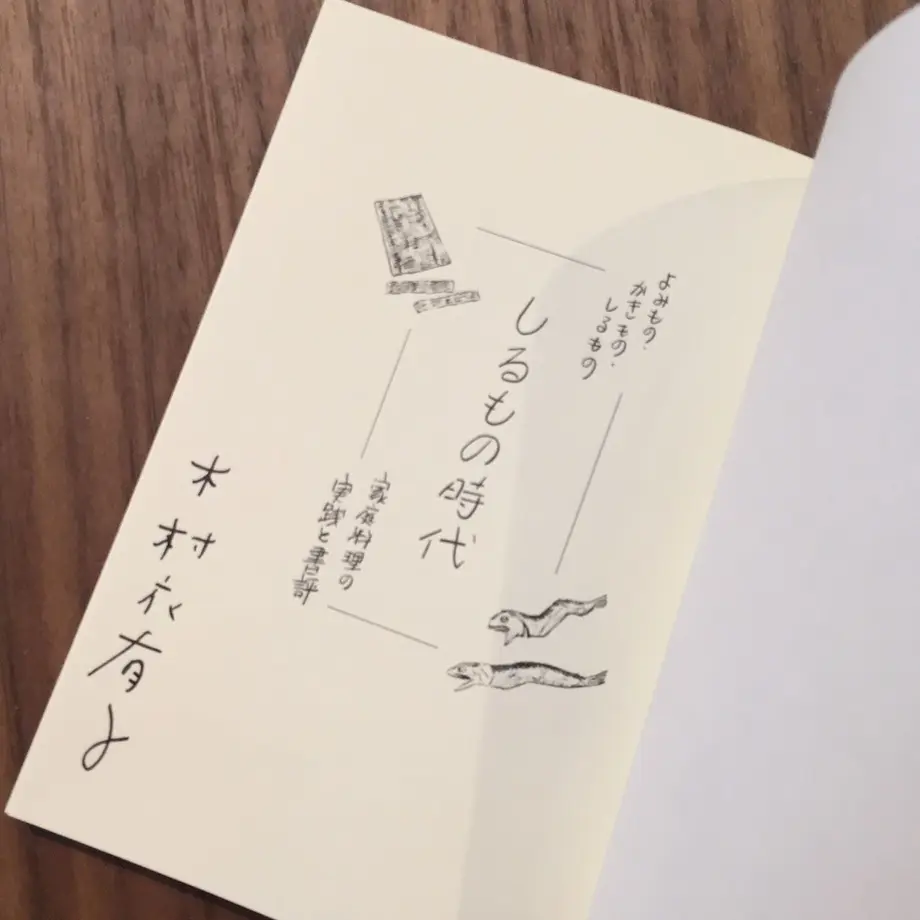 よみもの・
かきもの・
しるもの
しるもの時代
家庭料理の
実践と書評
木村衣有子